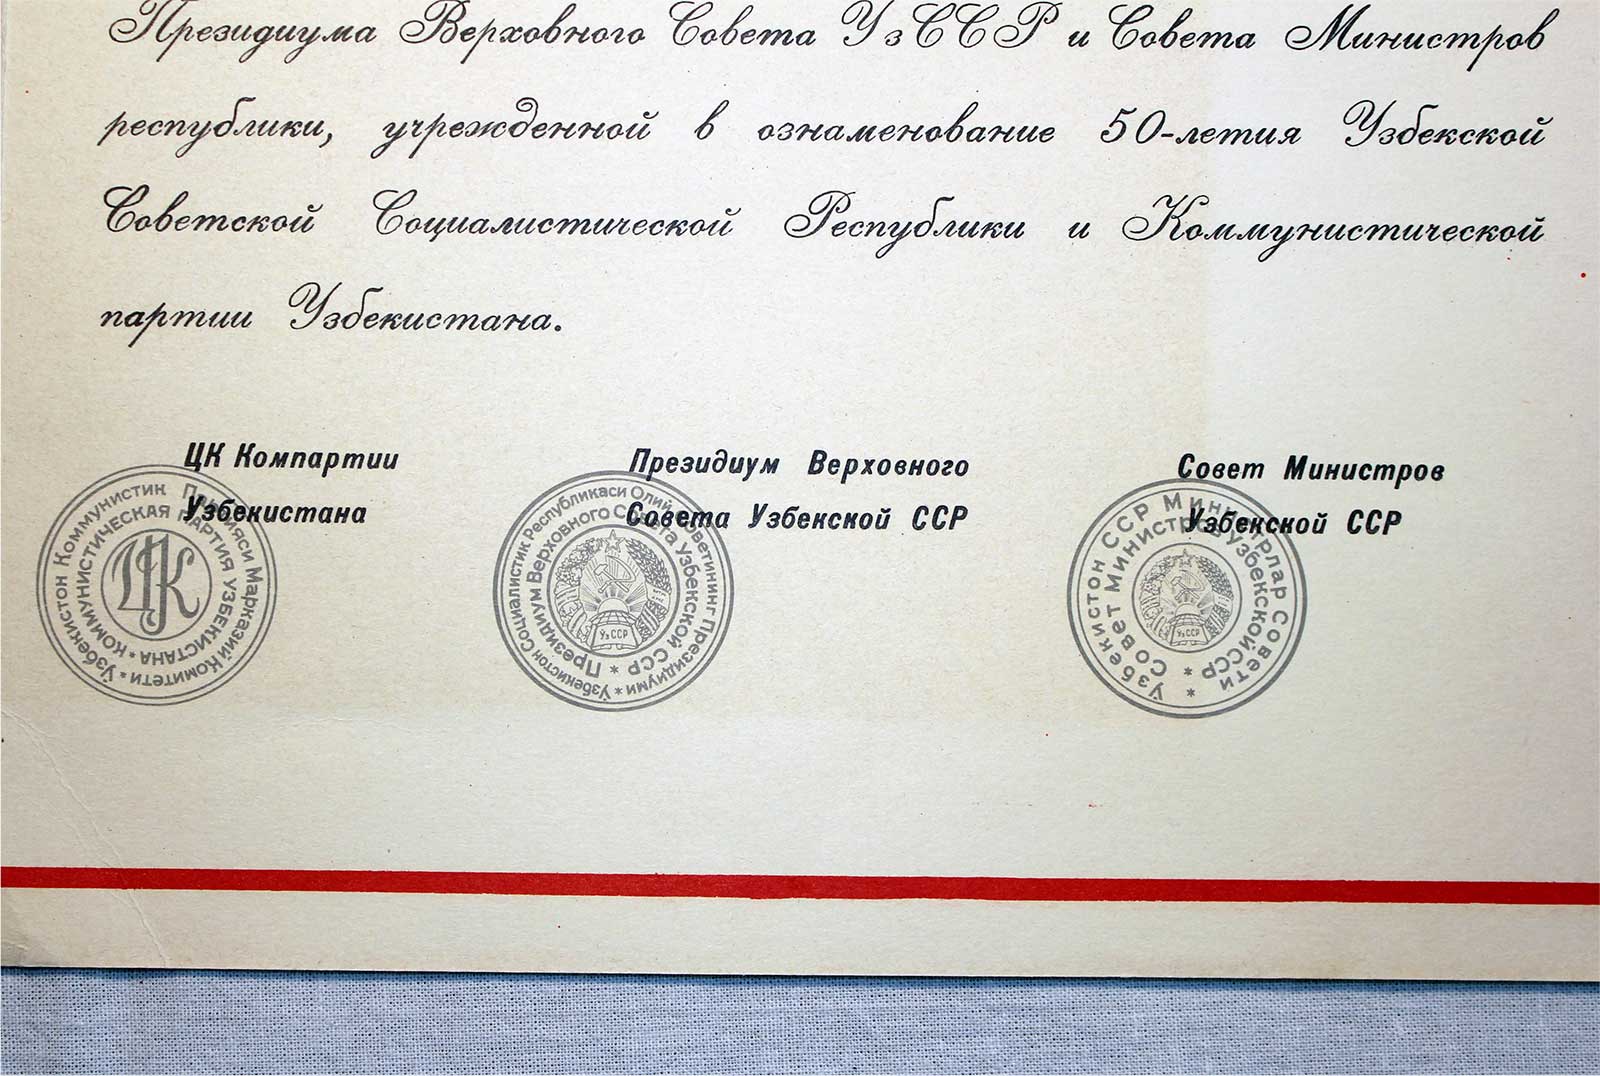 Президиума Верховного Совета УзССР и Совета Министров
республики, учрежденной в ознаменование 50-летия Узбекской
Советской Социалистической Республики и Коммунистической
партии Узбекистана.
ЦК Компартии
Узбекистана
Президиум Верховного
Совета Узбекской ССР
Совет Министров
Узбекской ССР
Ўзбекистон Коммунистик Партияси Марказий Комитети *
Коммунистическая партия Узбекистана *
ЦК
Ўзбекистон Социалистик Республикаси Олий Советининг Президиуми *
Президиум Верховного Совета Узбекской ССР *
Уз ССР
Ўзбекистон ССР Министрлар Совети *
Совет Министров Узбекской ССР *
Уз ССР